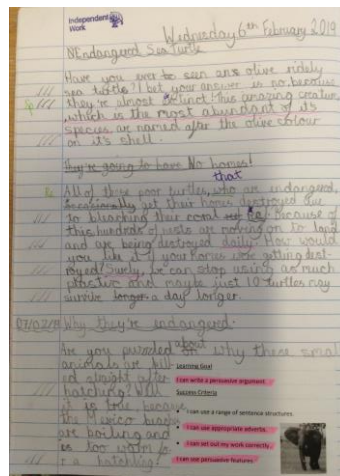 Independent
Work
Wednesday 6th February 2019
Endangered Sea Turtle
Have you ever be seen an olive ridely
sea turtle? I bet your answer is no, because
they're almost extinct! This amazing creature
, which is the most abundant of it's
species, are named after the olive colour
on it's shell.
They're going to have No homes!
that
All of these poor turtles, who are endangered,
occasionally get their homes destroyed due
to bleaching their coral Because of
this hundreds of nests are moving on to land
and are being destroyed daily. How would
you like it if your homes were getting dest-
royed! Surely, we can stop using as much
plastic and maybe just 10 turtles may
survive longer a day longer.
07/02/19 Why they're endangered.
about
Are you puzzled on why these small
animals are kill-
ed straight after
hatching? Well
it is true, because
the Mexico beaches
are boiling and
is too warm fo
r a hatchling!
Learning Goal
I can write a persuasive argument.
Success Criteria
I can use a range of sentence structures.
I can use appropriate adverbs.
I can set out my work correctly.
I can use persuasive features.